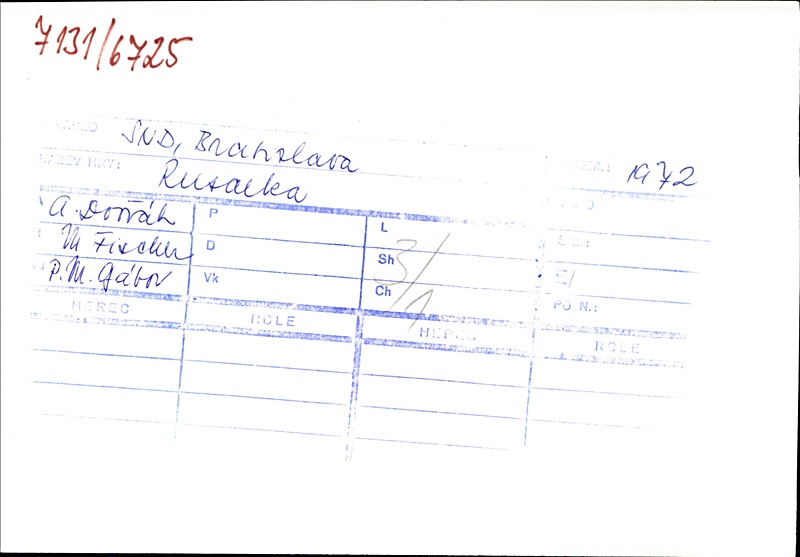 7131/6725
SND, Bratislava
NÁZEV HRY: Rusalka 1972
A. Dvořák P L
M Fischer D Sh 3/1
P. M. Gábor Vk Ch
POZN.:
HEREC ROLE HEREC ROLE